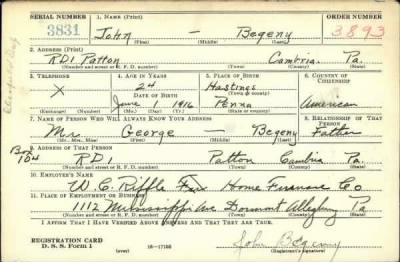 SERIAL NUMBER 1. NAME (Print) ORDER NUMBER
3831 John — Begeny 3893
(First) (Middle) (Last)
2. ADDRESS (Print)
RD1 Patton Cambria Pa.
(Number and street or R. F. D. number) (Town) (County) (State)
3. TELEPHONE 4. AGE IN YEARS 5. PLACE OF BIRTH 6. COUNTRY OF CITIZENSHIP
X 24 Hastings
DATE OF BIRTH (Town or county)
June 1 1916 Penna American
(Exchange) (Number) (Mo.) (Day) (Yr.) (State or country)
7. NAME OF PERSON WHO WILL ALWAYS KNOW YOUR ADDRESS 8. RELATIONSHIP OF THAT PERSON
Mr. George — Begeny Father
(Mr., Mrs., Miss) (First) (Middle) (Last)
Box 104
9. ADDRESS OF THAT PERSON
RD1 Patton Cambria Pa.
(Number and street or R. F. D. number) (Town) (County) (State)
10. EMPLOYER'S NAME
W. C. Riffle Fox Home Furnace Co
11. PLACE OF EMPLOYMENT OR BUSINESS
1112 Mississippi Ave Dormont Allegheny Pa
(Number and street or R. F. D. number) (Town) (County) (State)
I AFFIRM THAT I HAVE VERIFIED ABOVE ANSWERS AND THAT THEY ARE TRUE.
REGISTRATION CARD
D. S. S. Form 1 (over) 16—17105 John Begeny